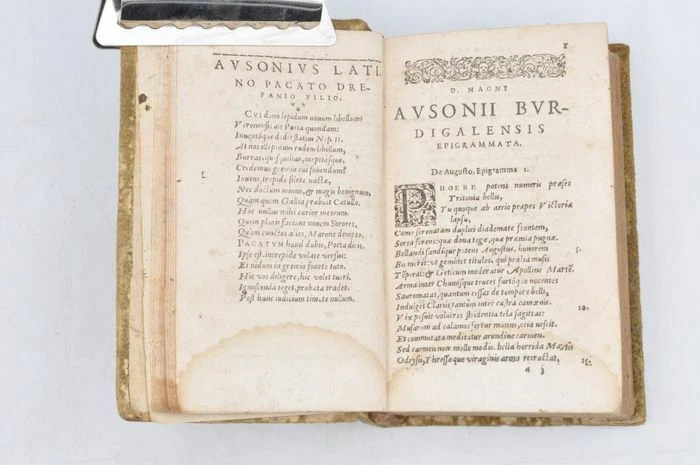 AVSONIVS LATI-
NO PACATO DRE-
PANIO FILIO.
CVI dono lepidum nouum libellum?
Veronensis ait Poëta quondam:
Inuentóque dedit statim Nepoti.
At nos illepidum, rudem libellum,
Burras, quisquilias, ineptiasque,
Credemus gremio cui fouendum?
Inueni, trepidæ silete nugæ,
Nec doctum minus, & magis benignum,
Quàm quem Gallia præbuit Catullo.
Hoc nullus mihi carior meorum.
Quem pluris faciunt nouem Sorores,
Quàm cunctos alios, Marone dempto.
PACATVM haud dubiè, Poëta dicis.
Ipse est. intrepidè volate versus:
Et nidum in gremio fouete tuto.
Hic vos diligere, hic volet tueri.
Ignoscenda teget, probata tradet.
Post hunc iudicium timete nullum.
1
D. MAGNI
AVSONII BVR-
DIGALENSIS
EPIGRAMMATA.
De Augusto. Epigramma 1.
PHOEBE potens numeris præses
Tritonia bellis,
Tu quoque ab aerio præpes Victoria
lapsu,
Come serenatam duplici diademate frontem,
Serta ferens: quæ dona togæ, quæ præmia pugnæ.
Bellandi fandíque potens Augustus, honorem
Bis meret: vt geminet titulos, qui prælia musis
Tēperat: & Geticum moderatur Apolline Martē.
Arma inter Chunósque truces furtóque nocentes
Sauromatas, quantum cessat de tempore belli,
Indulget Clariis tantùm inter castra camœnis.
Vix posuit volucres stridentia tela sagittas:
Musarum ad calamos fertur manus, otia nescit.
Et commutata meditatur arundine carmen.
Sed carmen non molle modis. bella horrida Martis
Odrysij, Thressæque viraginis arma retractat.
5.
10.
15.
a j